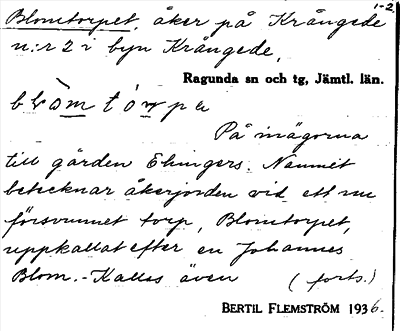 1-2
Blomtorpet, åker på Krångede
n:r 2 i byn Krångede,
Ragunda sn och tg, Jämtl. län.
blòm tórpə
På inägorna
till gården Elingers. Namnet
betecknar åkerjorden vid ett nu
försvunnet torp, Blomtorpet,
uppkallat efter en Johannes
Blom. - Kallas även (forts.)
BERTIL FLEMSTRÖM 1936.